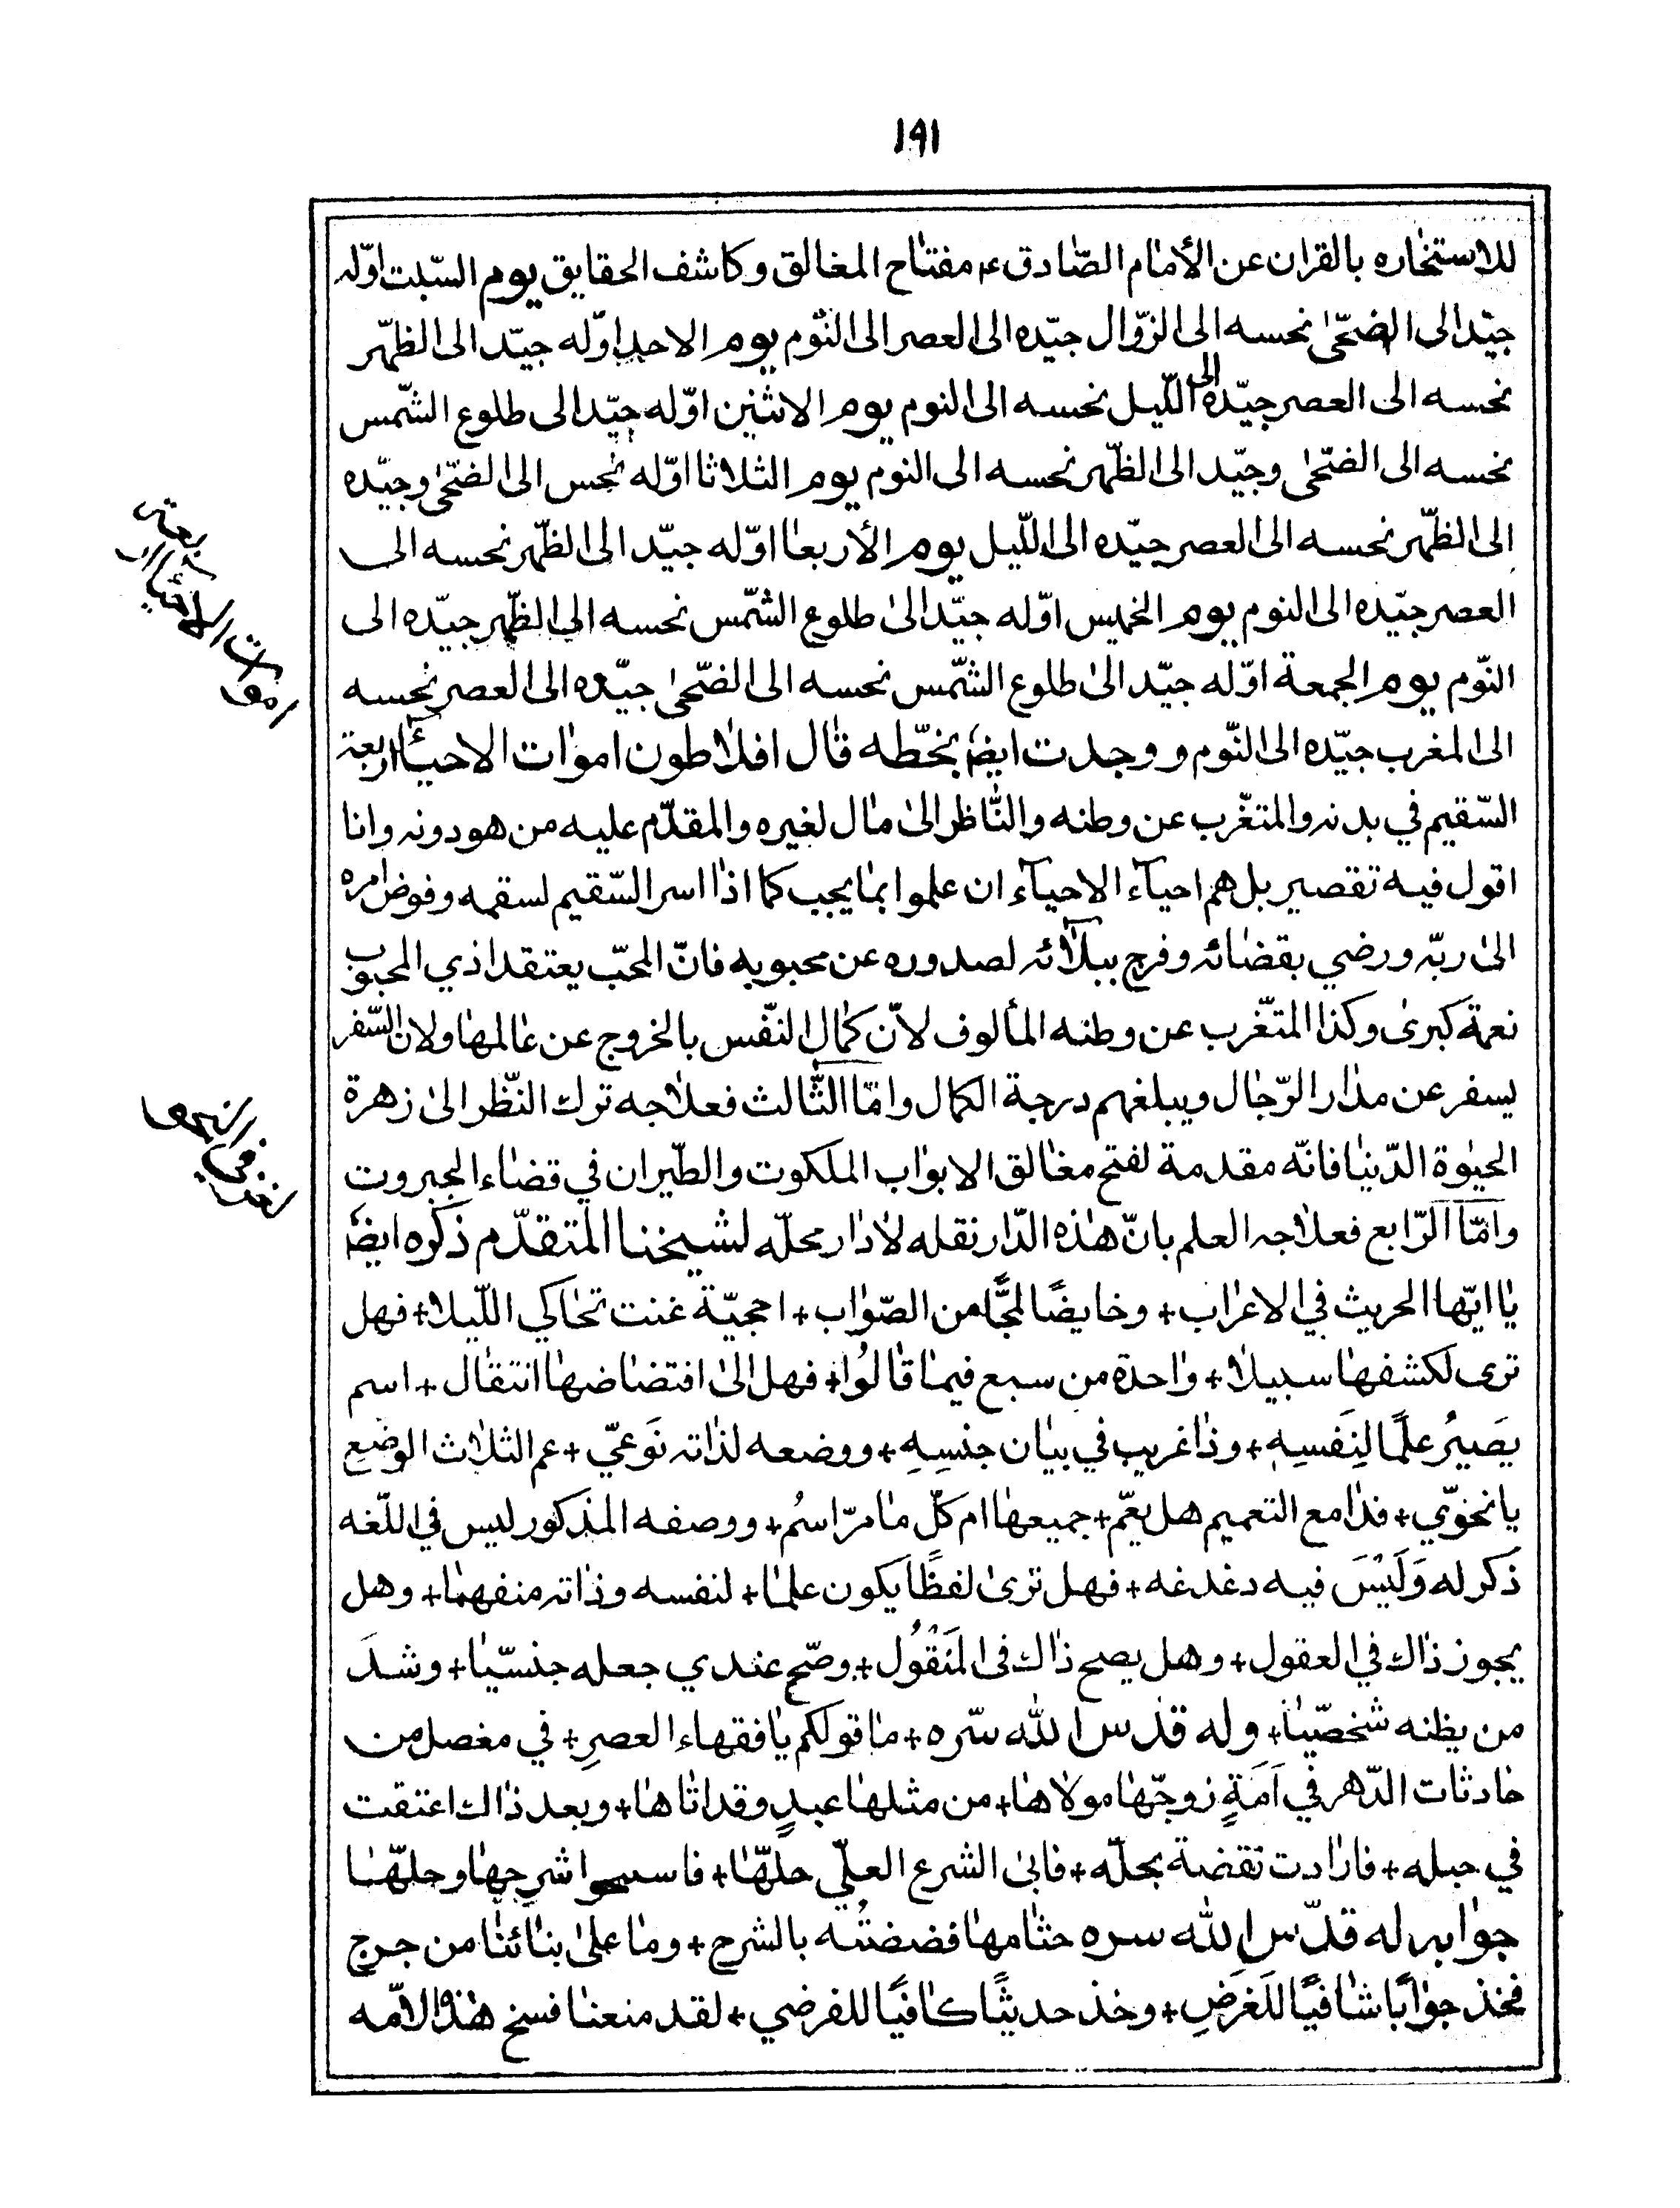 ١٩١
للاستخاره بالقران عن الأمام الصّادق ع مفتاح المغالق وكاشف الحقايق يوم السّبت اوّله
جيّد الى الضّحىٰ نحسه الى الزّوال جيّده الى العصر الى النّوم يوم الاحد اوّله جيّد الى الظّهر
نحسه الى العصر جيّده الى اللّيل نحسه الى النوم يوم الاثنين اوّله جيّد الى طلوع الشّمس
نحسه الى الضّحىٰ وجيّد الى الظّهر نحسه الى النوم يوم الثلاثا اوّله نحس الى الضّحىٰ وجيّده
الى الظّهر نحسه الى العصر جيّده الى اللّيل يوم الأربعا اوّله جيّد الى الظّهر نحسه الى
العصر جيّده الى النوم يوم الخميس اوّله جيّد الىٰ طلوع الشّمس نحسه الى الظّهر جيّده الى
النّوم يوم الجمعة اوّله جيّد الىٰ طلوع الشّمس نحسه الى الضّحىٰ جيّده الى العصر نحسه
الى المغرب جيّده الى النّوم ووجدت ايضا بخطّه قال افلاطون اموات الاحيآء اربعة
السّقيم في بدنه والمتغّرب عن وطنه والنّاظر الىٰ مال لغيره والمقدّم عليه من هو دونه وانا
اقول فيه تقصير بل هم احيآء الاحيآء ان علموا بما يجب كما اذا اسر السّقيم لسقمه وفوض امره
الىٰ ربّه ورضي بقضائه وفرح ببلآئه لصدوره عن محبوبه فانّ المحبّ يعتقد اذي المحبوب
نعمة كبرىٰ وكذا المتغّرب عن وطنه المألوف لانّ كمال النّفس بالخروج عن عالمها ولان السّفر
يسفر عن مدار الرّجال ويبلغهم درجة الكمال وامّا الثّالث فعلاجه ترك النّظر الىٰ زهرة
الحيٰوة الدّنيا فانّه مقدمة لفتح مغالق الابواب الملكوت والطّيران في قضاء الجبروت
وامّا الرّابع فعلاجه العلم بانّ هذه الدّار نقله لا دار محلّه لشيخنا المتقدّم ذكره ايضا
يا ايّها الحريث في الاعراب + وخايضًا لجًّا من الصّواب + احجيّة غنت تحاكي اللّيلا + فهل
ترى لكشفها سبيلا + واحدة من سبع فيما قالُوا + فهل الىٰ افتضاضها انتقال + اسم
يَصيرُ علمًا لِنَفسِهِ + وذا غريب في بيان جنسِهِ + ووضعه لذاته نَوعيّ + عم الثلاث الوضع
يا نحوّي + فذا مع التعميم هل يعّم + جميعها ام كلّ ما مرّ اسُم + ووصفه المذكور ليس في اللّغه
ذكر له وَلَيْسَ فيه دغدغه + فهل ترىٰ لفظًا يكون علما + لنفسه وذاته منفهما + وهل
يجوز ذاك في العقول + وهل يصح ذاك في المَنْقُول + وصّح عندي جعله جنسّيا + وشذَ
من يظنه شخصّيا + وله قدس الله سّره + ما قولكم يا فقهاء العصرِ + في مغصل من
حادثات الدّهر في اَمَةٍ زوجّها مولاها + من مثلها عبدٍ وقد اتاها + وبعد ذاك اعتقت
في حبله + فارادت نقضة بحلّه + فابىٰ الشرع العلّي حلهّا + شرجها وحلهّا
جوابه له قدّس الله سره ختامها فضضتُه بالشرح + وما علىٰ بنائنا من جرح
فخذ جوابًا شافيًا للَغرَضِ + وخذ حديثًا كافيًا للفرضي + لقد منعنا فسخ هذه الامّه
اموات الاحياء اربعة